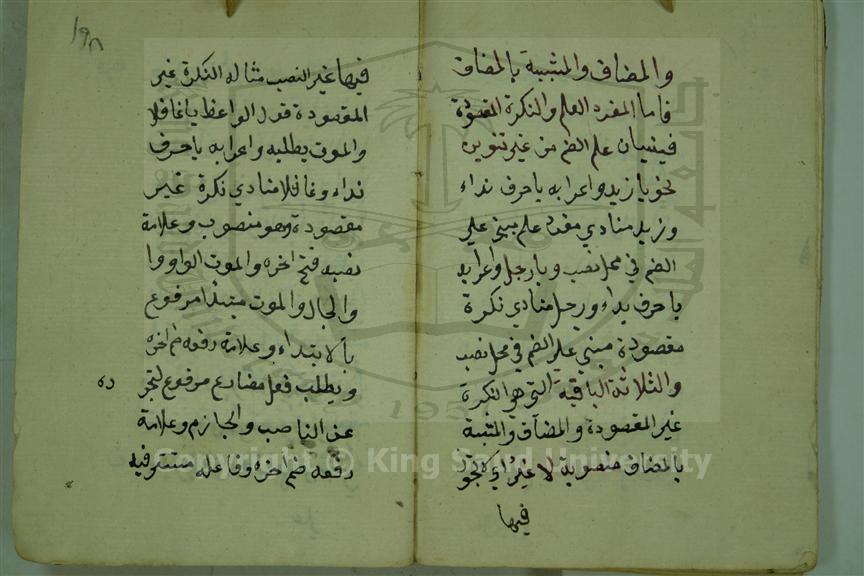 والمضاف والمشبية بالمضاف
فاما المفرد العلم والنكرة المقصودة
فيبنيان علم الضم من غير تنوين
نحو يا زيد واعرابه يا حرف نداء
وزيد منادي مفرد علم مبني علي
الضم في محل نصب ويا رجل واعرابه
يا حرف نداء ورجل منادي نكرة
مقصودة مبني علي الضم في محل نصب
والثلاثة الباقية التي هو النكرة
غير المقصودة والمضاف والمشبية
بالمضاف منصوبة لا غير اي لا يجوز
فيها
١٩٨
فيها غير النصب مثاله النكرة غير
المقصودة قول الواعظ يا غافلا
والموت يطلبه واعرابه يا حرف
نداء وغافلا منادي نكرة غير
مقصودة وهو منصوب وعلامة
نصبه فتح اخره والموت الواو وا
والحال والموت مبتدا مرفوع
بالابتداء وعلامة رفعه ضم اخره
ويطلب فعل مضارع مرفوع لتجر
ده
عن الناصب والجازم وعلامة
رفعه ضم اخره وفاعله مستتر فيه
Copyright © King Saud University
195